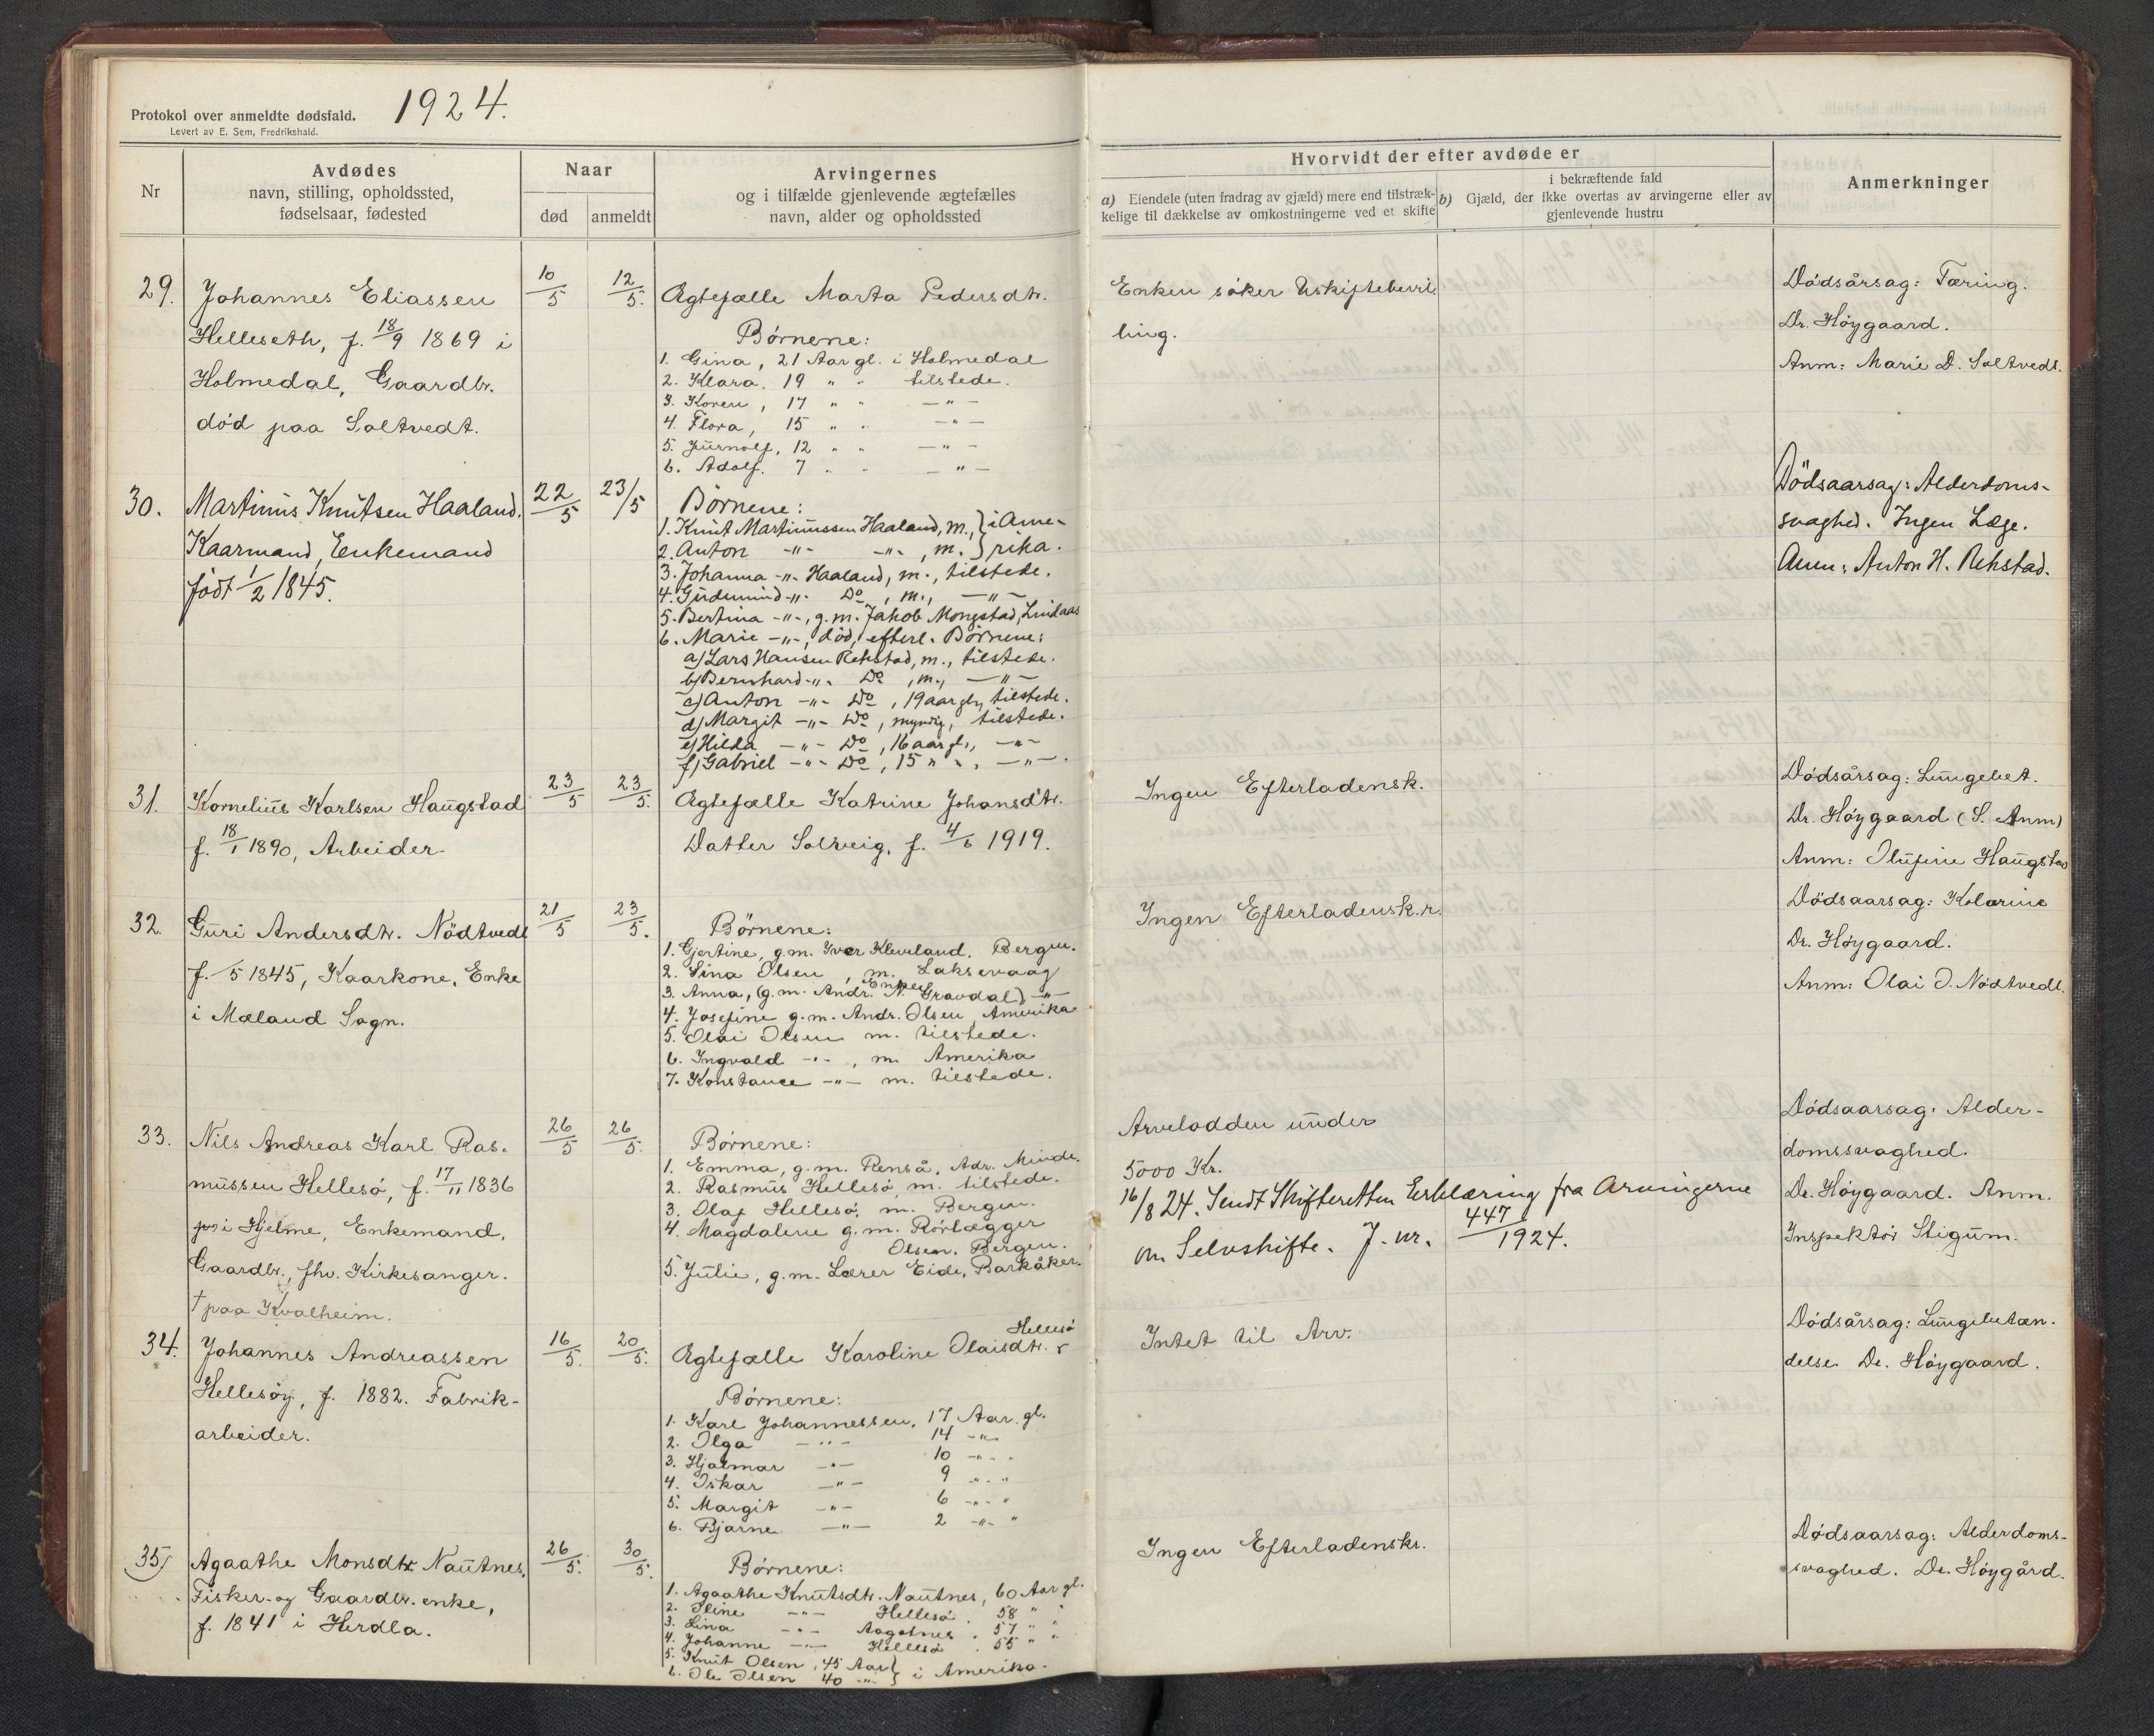 Protokol over anmeldte dødsfald. 1924.
Levert av E. Sem, Fredrikshald.
Nr
Avdødes
navn, stilling, opholdssted,
fødselsaar, fødested
Naar
død
anmeldt
Arvingernes
og i tilfælde gjenlevende ægtefælles
navn, alder og opholdssted
Hvorvidt der efter avdøde er
a) Eiendele (uten fradrag av gjæld) mere end tilstræk-
kelige til dækkelse av omkostningerne ved et skifte
i bekræftende fald
b) Gjæld, der ikke overtas av arvingerne eller av
gjenlevende hustru
Anmerkninger
29.
Johannes Eliassen
Helleseth, f. 18/9 1869 i
Holmedal, Gaardbr.
død paa Soltvedt.
10/5
12/5.
Ægtefælle Marta Pedersdtr.
Børnene:
1. Gina, 21 Aar gl. i Holmedal
2. Klara. 19 " " tilstede.
3. Koren, 17 " " — " —
4. Flora, 15 " " — " —
5. Jürnolf, 12 " " — " —
6. Adolf. 7 " " — " —
Enken søker Uskiftebevil-
ling.
Dødsårsag: Tæring.
Dr. Høygaard.
Anm: Marie D. Soltvedt.
30.
Martinus Knutsen Haaland.
Kaarmand, Enkemand
født 1/2 1845.
22/5
23/5
Børnene:
1. Knut Martinussen Haaland, m., } i Ame-
2. Anton -"- -"-, m. } rika.
3. Johanna -"- Haaland, m., tilstede.
4. Gudmund -"- Do, m., —"—
5. Bertina -"-, g.m. Jakob Mongstad, Lindaas
6. Marie -"-, død, efterl. Börnene:
a) Lars Hansen Rehstad, m., tilstede.
b) Bernhard -"- Do, m., —"—
c) Anton -"- Do, 19 aar gl., tilstede.
d) Margit -"- Do, myndig, tilstede.
e) Hilda -"- Do, 16 aar gl., —"—
f) Gabriel -"- Do, 15 " ", —"—.
Dödsaarsag: Alderdoms-
svaghed. Ingen Læge.
Anm: Anton H. Rehstad.
31.
Kornelius Karlsen Haugstad
f. 18/1 1890, Arbeider
23/5
23/5.
Ægtefælle Katrine Johansdtr.
Datter Solveig, f. 4/6 1919.
Ingen Efterladensk.
Dødsårsag: Lungebet.
Dr. Høygaard (S. Anm)
Anm: Olufine Haugstad
32.
Guri Andersdtr. Nödtvedt
f. /5 1845, Kaarkone, Enke
i Mæland Sogn.
21/5
23/5.
Børnene:
1. Gjertine, g.m. Iver Kleveland. Bergen.
2. Lina Olsen, m. Laksevaag
3. Anna, (g.m. Andr. N. Gravdal) Enke —"—
4. Josefine g.m. Andr. Olsen Amerika
5. Olai Olsen m. tilstede.
6. Ingvald -"-, m. Amerika
7. Konstance —"— m. tilstede.
Ingen Efterladensk.r.
Dödsaarsag: Kolerine
Dr. Høygaard.
Anm: Olai O. Nødtvedt.
33.
Nils Andreas Karl Ras-
mussen Hellesö, f. 17/11 1836
i Hjelme, Enkemand,
Gaardbr., fhv. Kirkesanger.
† paa Kvalheim.
26/5
26/5.
Børnene:
1. Emma, g.m. Renså, Adr. Minde.
2. Rasmus Hellesö m. tilstede.
3. Olaf Hellesö. m. Bergen.
4. Magdalene g.m. Rörlægger
Olsen. Bergen.
5. Julie, g.m. Lærer Eide, Barkåker.
Arvelodden under
5000 Kr.
16/8 24. Sendt Skifteretten Erklæring fra Arvingerne
om Selvskifte. J. nr. 447/1924.
Dødsaarsag: Alder-
domssvaghed.
Dr. Høygaard. Anm.
Inspektør Stigum.
34.
Johannes Andreassen
Hellesöy, f. 1882. Fabrik-
arbeider.
16/5.
20/5.
Hellesö
Ægtefælle Karoline Olaisdtr.
Børnene:
1. Karl Johannessen, 17 Aar. gl.
2. Olga —"— 14 -"-
3. Hjalmar —"— 10 -"- "
4. Oskar —"— 9 "-"
5. Margit —"— 6 -"- "
6. Bjarne —"— 2 -"- "
Intet til Arv.
Dødsårsag: Lungebetæn-
delse Dr. Høygaard.
35)
Agaathe Monsdtr. Nautnes.
Fisker- og Gaardbr. enke,
f. 1841 i Herdla.
26/5.
30/5.
Børnene:
1. Agaathe Knutsdtr. Nautnes, 60 Aar gl.
2. Oline —"— Hellesö. 58 " "
3. Lina —"— Aagotnes. 57 " "
4. Johanne —"— Hellesö. 55 " "
5. Knut Olsen, 45 Aar }
6. Ole Olsen 40 -"- } i Amerika.
Ingen Efterladenskr.
Dødsaarsag: Alderdoms-
svaghed. Dr. Høygård.